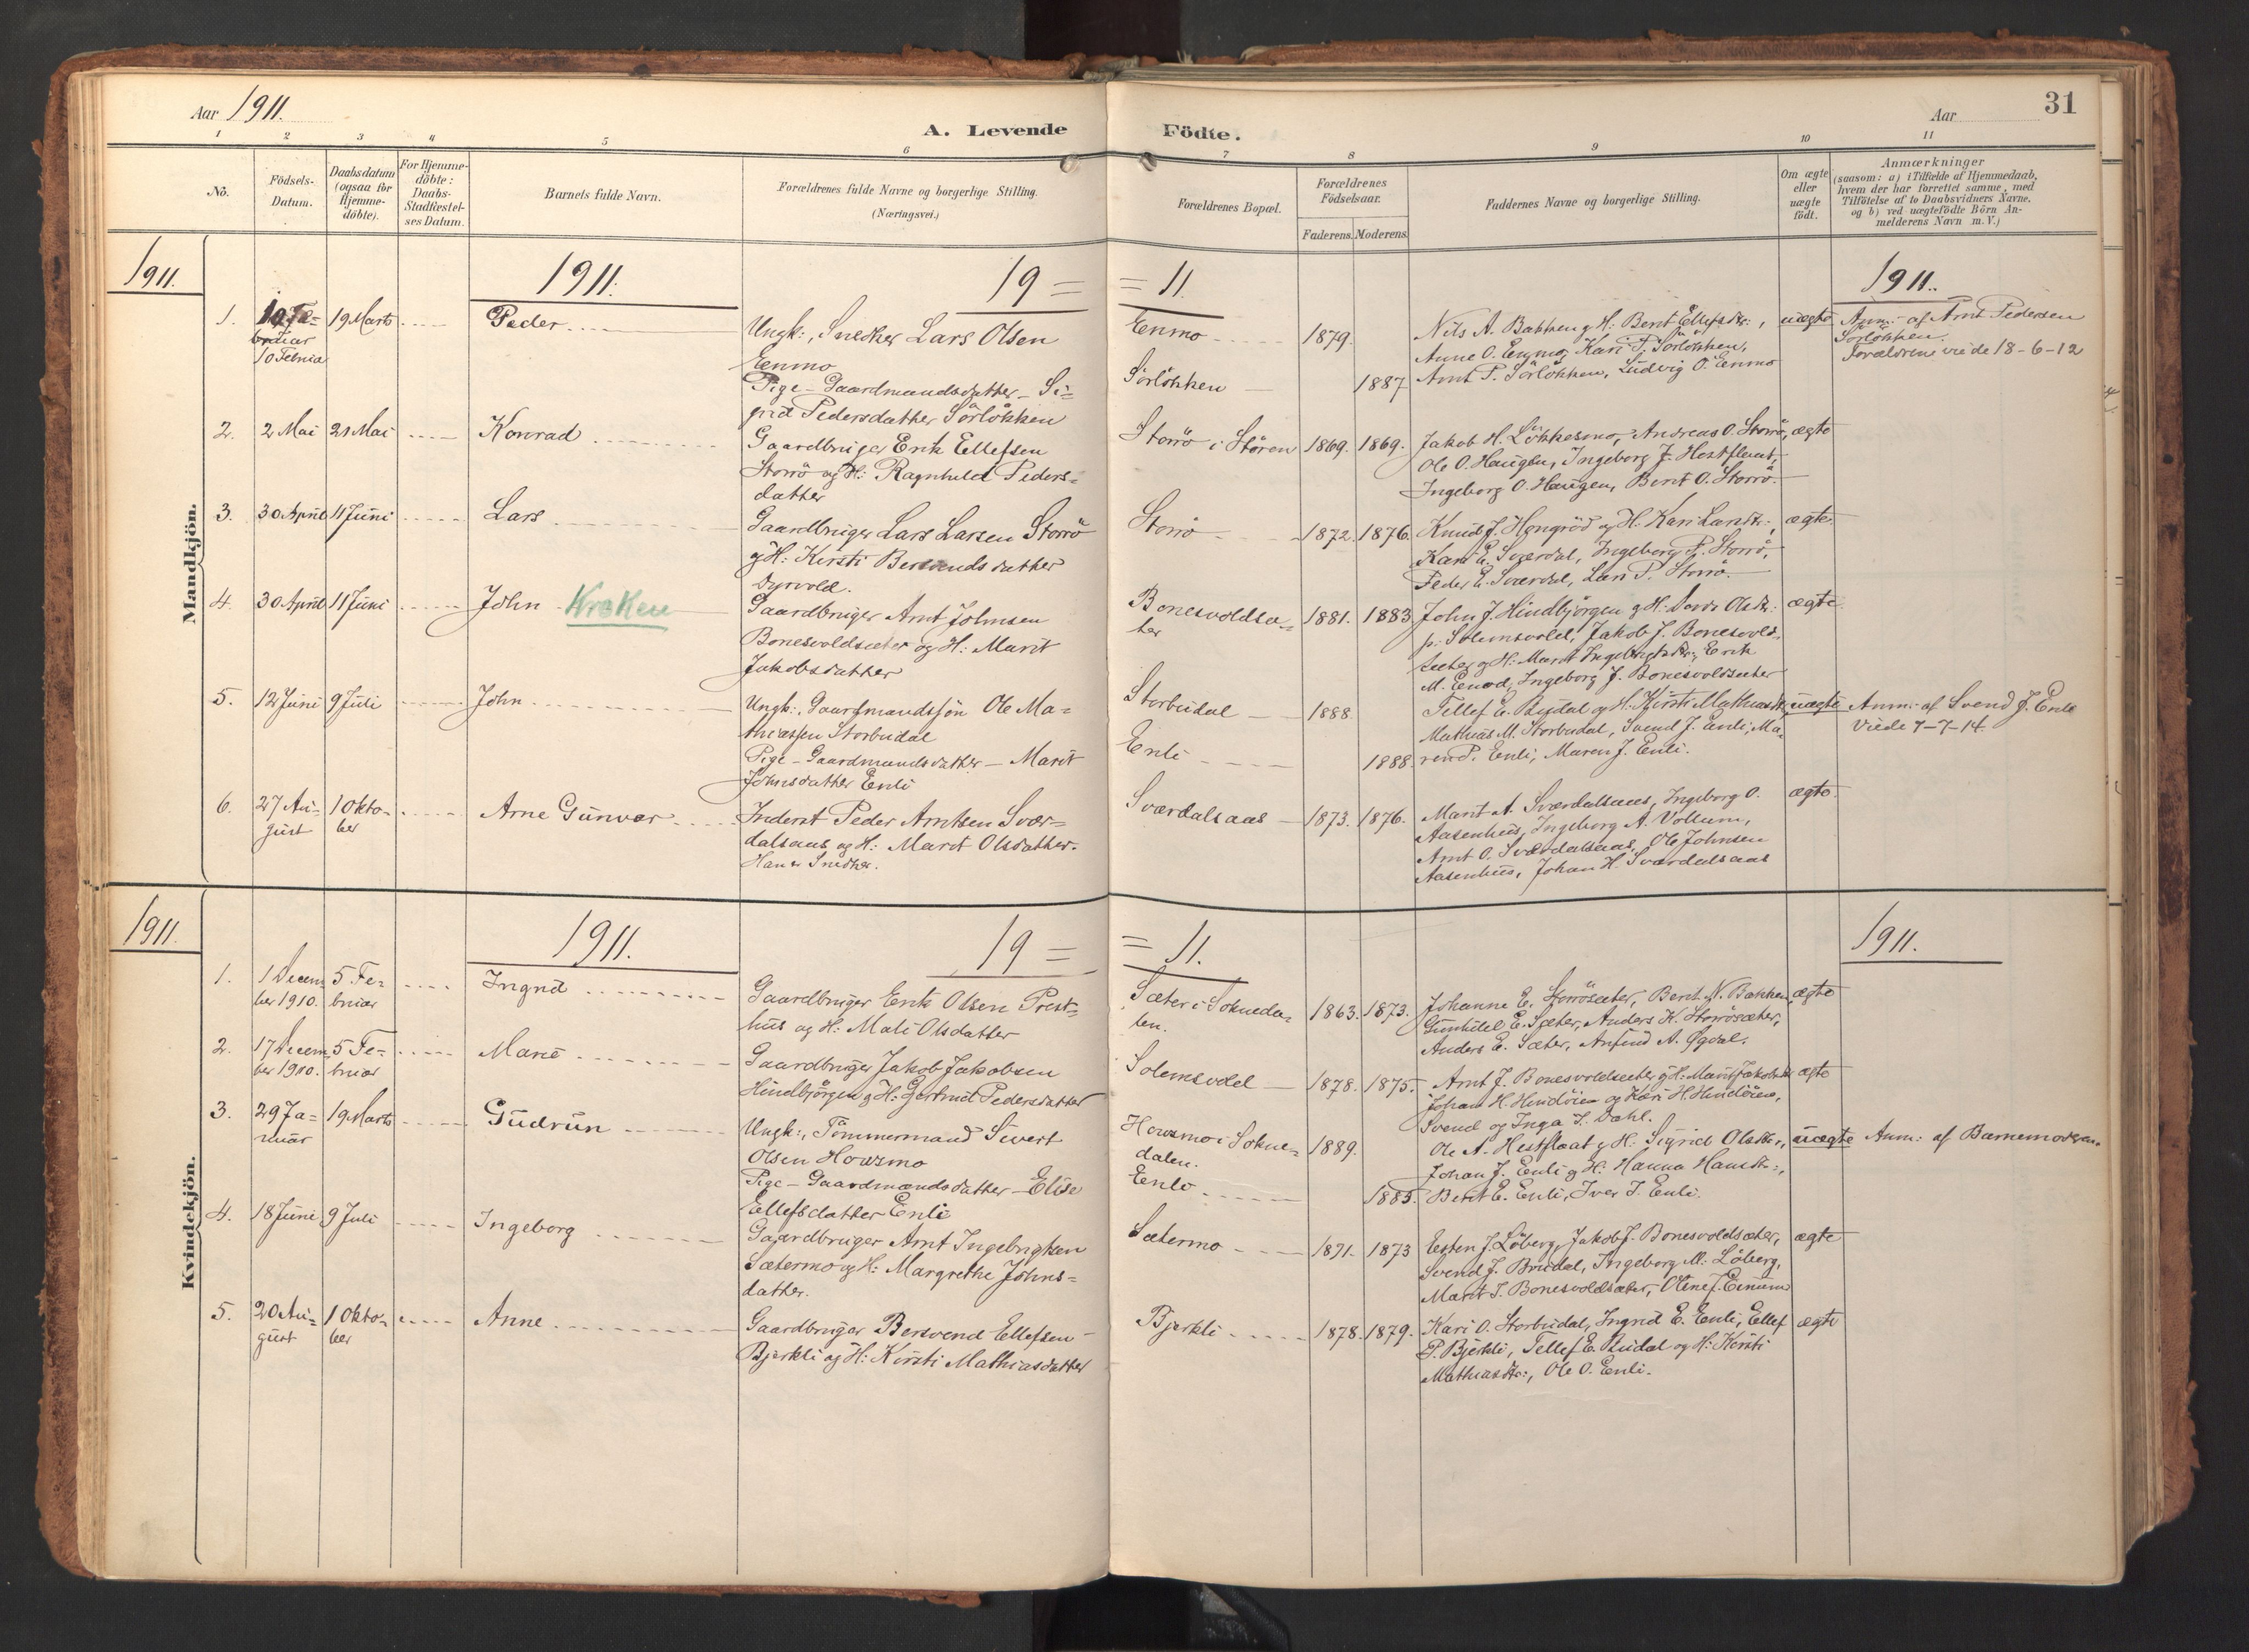 Aar 1911.
A. Levende
Födte.
Aar
31
1 2 3 4 5 6 7 8 9 10 11
No.
Födsels-
Datum.
Daabsdatum
(ogsaa for
Hjemme-
döbte).
For Hjemme-
döbte:
Daabs-
Stadfæstel-
ses Datum.
Barnets fulde Navn.
Forældrenes fulde Navne og borgerlige Stilling.
(Næringsvei.)
Forældrenes Bopæl.
Forældrenes
Födselsaar.
Faderens. Moderens.
Faddernes Navne og borgerlige Stilling.
Om ægte
eller
uægte
födt.
Anmærkninger
(saasom: a) i Tilfælde af Hjemmedaab,
hvem der har forrettet samme, med
Tilföielse af to Daabsvidners Navne.
og b) ved uægtefödte Börn An-
melderens Navn m. V.)
Mandkjön.
1911.
1911.
19 =
= 11.
1911.
1.
10 Fe=
bruar
10 Februa
19 Marts
Peder
Ungk:, Snedker Lars Olsen
Enmo
Pige - Gaardmandsdatter - Si=
grid Pedersdatter Sörlökken
Enmo
Sörlökken
1879.
1887
Nils A. Bakken og H: Berit Ellefsdtr:,
Anne O. Enmo, Kari P. Sörlökken,
Arnt P. Sörlökken, Ludvig O. Enmo
uægte
Anm: af Arnt Pedersen
Sörlökken.
Forældrene viede 18-6-12
2.
2 Mai
21 Mai
Konrad
Gaardbruger Erik Ellefsen
Storrö og H: Ragnhild Peders=
datter
Storrö i Stören
1869.
1869.
Jakob H. Lökkesmo, Andreas O. Storrö,
Ole O. Haugen, Ingeborg J. Hestflaat,
Ingeborg O. Haugen, Berit O. Storrö.
ægte
3.
30 April
11 Juni
Lars
Gaardbruger Lars Larsen Storrö
og H: Kirsti Bersvendsdatter
Dyrvold.
Storrö
1872.
1876.
Knud J. Hongröd og H: Kari Larsdtr:,
Kari E. Sværdal, Ingeborg P. Storrö,
Peder E. Sværdal, Lars P. Storrö.
ægte.
4.
30 April
11 Juni
John Kroken
Gaardbruger Arnt Johnsen
Bonesvoldsæter og H: Marit
Jakobsdatter
Bonesvoldsæ=
ter
1881.
1883
John J. Hindbjörgen og H: Olsdtr:
p. Solemsvold, Jakob J. Bonesvold=
sæter og H: Marit Ingebrigtsdtr, Erik
M. Ingeborg J. Bonesvoldsæter
ægte
5.
12 Juni
9 Juli
John
Ungk:, Gaardmandssön Ole Ma=
thiassen Storbudal
Pige - Gaardmandsdatter - Marit
Johnsdatter Enli
Storbudal
Enli
1888.
1888.
Tellef E. Budal og H: Kirsti Mathiasdtr,
Mathias M. Storbudal, Svend J. Enli, Ma=
ren P. Enli, Maren J. Enli.
uægte
Anm: af Svend J. Enli
Viede 7-7-14.
6.
27 Au=
gust
1 Okto=
ber
Arne Gunvar
Inderst Peder Arntsen Svær=
dalsaas og H: Marit Olsdatter.
Han er Snedker.
Sværdalsaas
1873.
1876.
Marit A. Sværdalsaas, Ingeborg O.
Aasenhus, Ingeborg A. Vollum,
Arnt O. Sværdalsaas, Ole Johnsen
Aasenhus, Johan H. Sværdalsaas
ægte.
Kvindekjön.
1911.
1911.
19 =
= 11.
1911.
1.
1 Decem
ber 1910.
5 Fe=
bruar
Ingrid
Gaardbruger Erik Olsen Prest=
hus og H: Mali Olsdatter
Sæter i Sokneda=
len.
1863.
1873.
Johanne E. Storrösæter, Berit N. Bakken,
Gunhild E. Sæter, Anders K. Storrösæter,
Anders E. Sæter, Anfind A. Øgdal.
ægte
2.
17 Decem
ber 1910.
5 Fe=
bruar
Marie
Gaardbruger Jakob Jakobsen
Hindbjörgen og H: Gjertrud Pedersdatter
Solemsvold
1878.
1875.
Arnt J. Bonesvoldsæter og H: Marit Jakobsdtr
Johan H. Hindöien og Kari H. Hindöien,
Svend og Inga S. Dahl.
ægte
3.
29 Ja=
nuar
19 Marts
Gudrun
Ungk:, Tömmermand Sivert
Olsen Hovsmo
Pige - Gaardmandsdatter - Elise
Ellefsdatter Enli
Hovsmo i Sokne=
dalen.
Enli
1889.
1885.
Ole A. Hestflaat og H: Sigrid Olsdtr:,
Johan J. Enli og H: Hanna Hansdtr:,
Berit E. Enli, Iver I. Enli.
uægte
Anm: af Barnemoderen.
4.
18 Juni
9 Juli
Ingeborg
Gaardbruger Arnt Ingebrigtsen
Sætermo og H: Margrethe Johns=
datter.
Sætermo
1871.
1873
Esten J. Löberg, Jakob J. Bonesvoldsæter,
Svend J. Budal, Ingeborg M. Löberg,
Marit J. Bonesvoldsæter, Oline J. Enum
ægte
5.
20 Au=
gust
1 Okto=
ber
Anne
Gaardbruger Bersvend Ellefsen
Bjerkli og H: Kirsti Mathiasdatter
Bjerkli
1878.
1879.
Kari O. Storbudal, Ingrid E. Enli, Ellef
P. Bjerkli, Tellef E. Budal og H: Kirsti
Mathiasdtr:, Ole O. Enli.
ægte